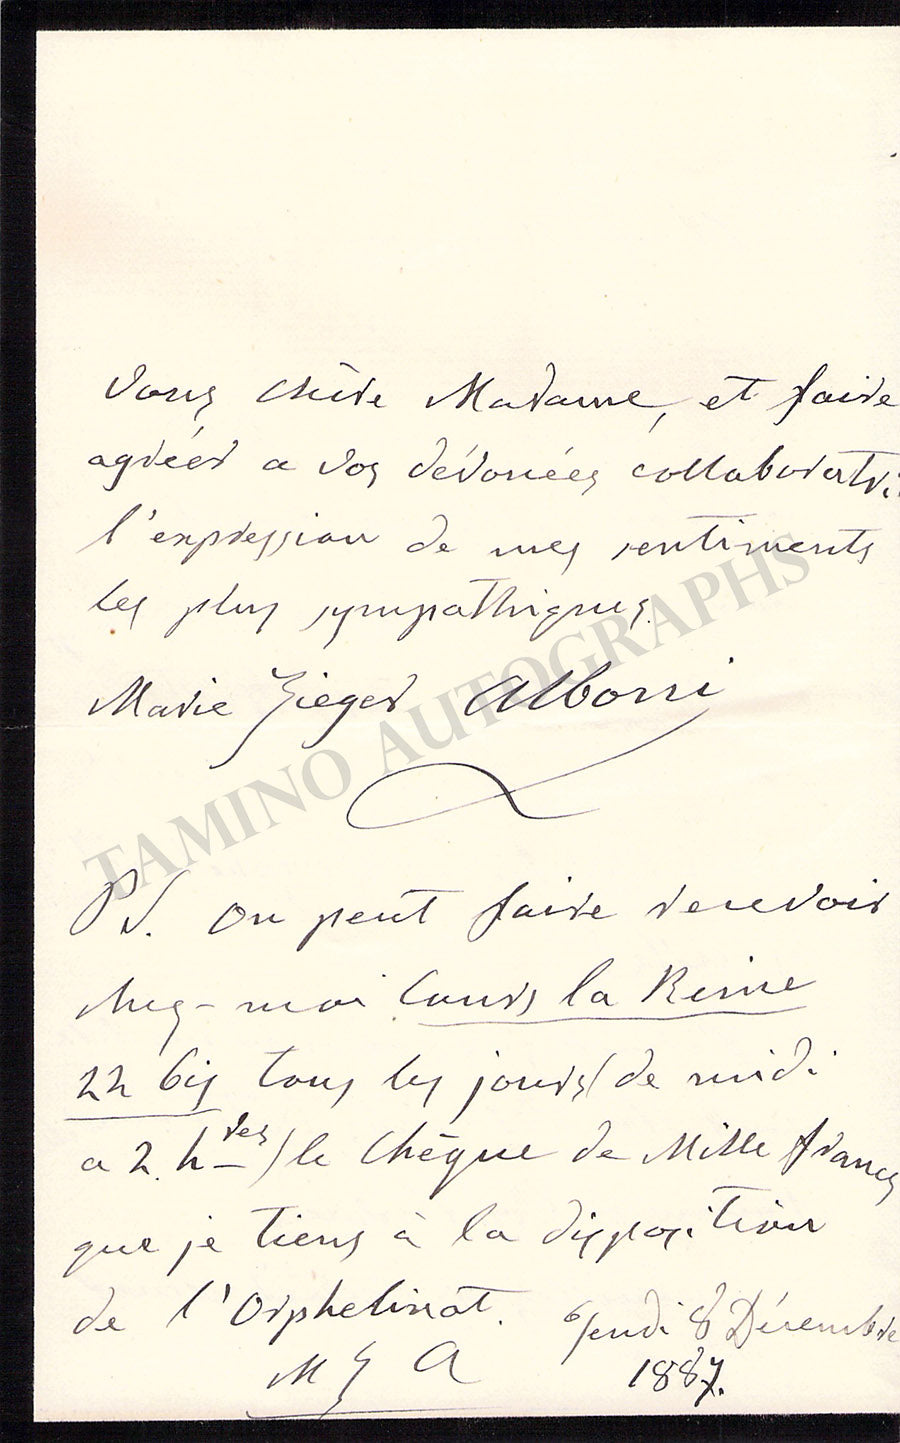 vous chère Madame, et faire
agréer a vos dévouées collaboratri
l'expression de mes sentiments
les plus sympathiques.
Marie Zieger Alboni
PS. On peut faire recevoir
chez-moi Cours la Reine
22 bis tous les jours (de midi
a 2 hres) le Chèque de Mille francs
que je tiens à la disposition
de l'Orphelinat.
Jeudi 8 Décembre
1887.
M Z A
TAMINO AUTOGRAPHS